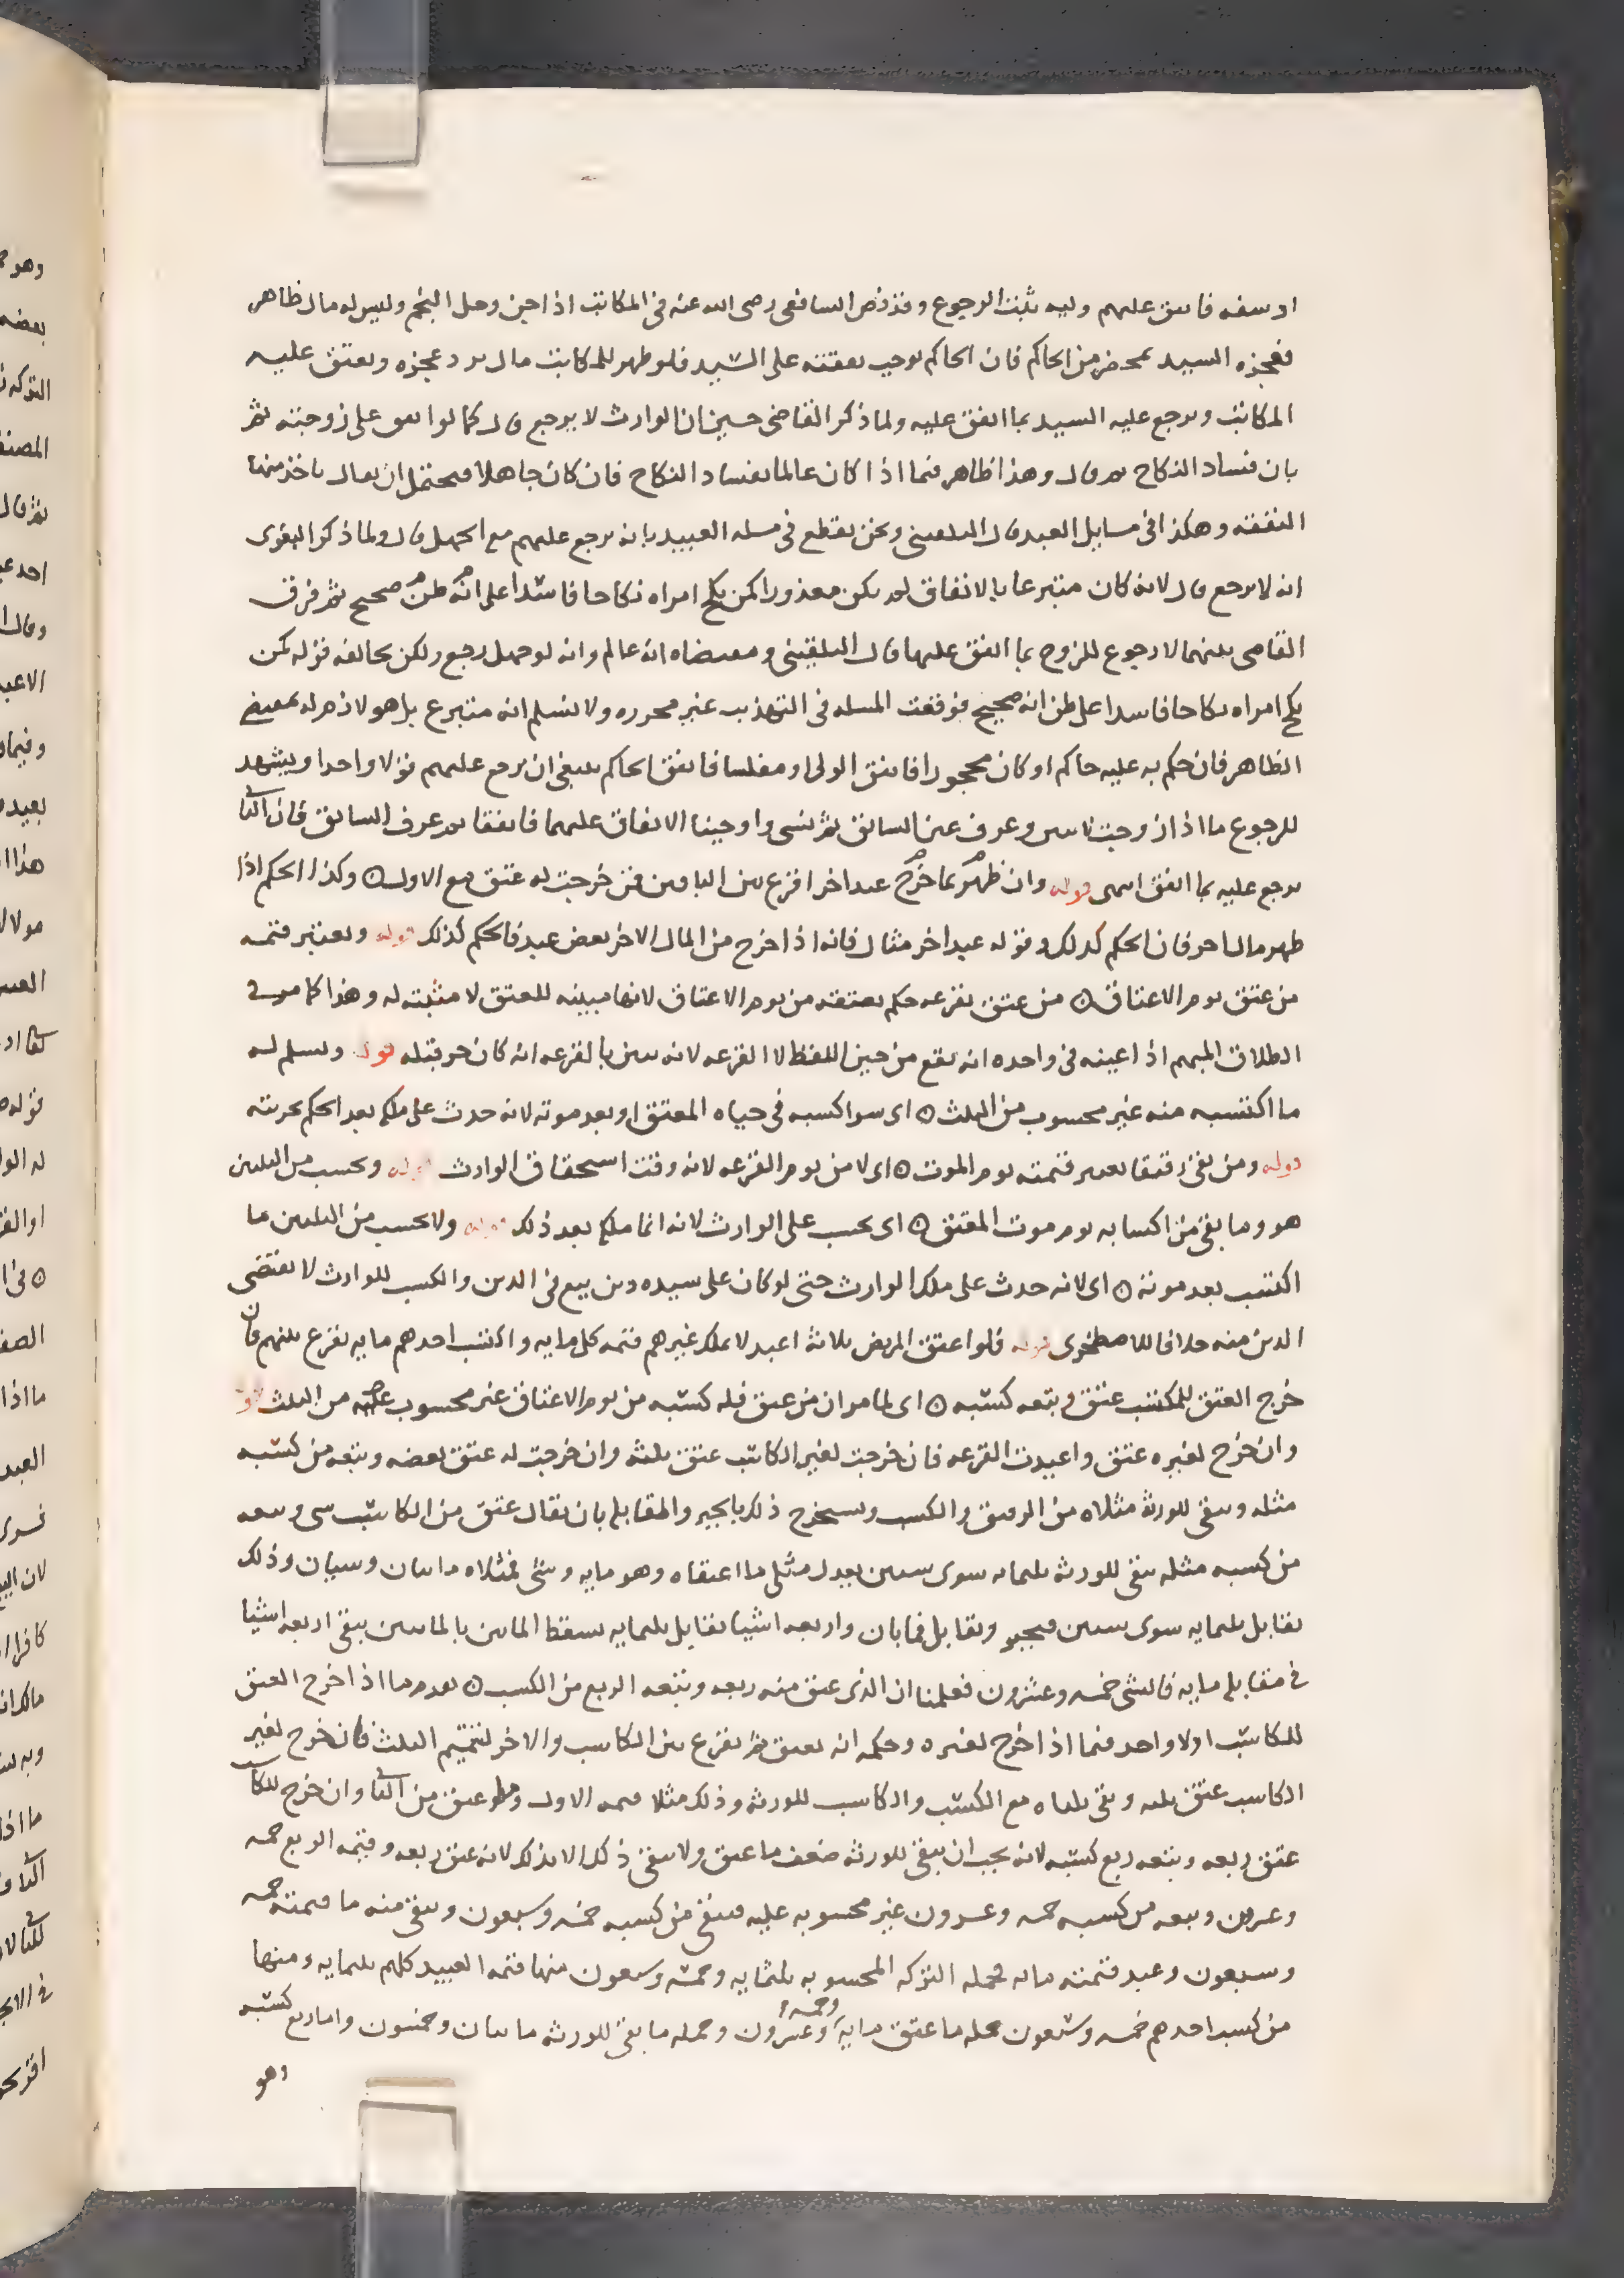 او سفه فانفق عليهم وليه ثبت الرجوع وقد نص الشافعي رضى الله عنه في المكاتب اذا جن وحل النجم وليس له مال ظاهر
فعجزه السيد بمحضر من الحاكم فان الحاكم يوجب نفقته على السيد فلو ظهر للمكاتب مال يرد عجزه ويعتق عليه
المكاتب ويرجع عليه السيد بما انفق عليه ولما ذكر القاضي حسين ان الوارث لا يرجع قال كما لو انفق على زوجته ثم
بان فساد النكاح ثم قال وهذا ظاهر فيما اذا كان عالما بفساد النكاح فان كان جاهلا فيحتمل ان يقال ياخذ منها
النفقه وهكذا في مسايل العبيد قال البلقيني ونحن نقطع في مسله العبيد بانه يرجع عليهم مع الجهل قال ولما ذكر البغوى
انه لا يرجع قال لانه كان متبرعا بالانفاق لم يكن معذورا كمن نكح امراه نكاحا فاسدا على انه ظن صحيح ثم فرق
القاضى بينهما لا رجوع للزوج بما انفق عليها قال البلقيني ومقتضاه انه عالم وانه لو جهل رجع ولكن يخالفه قوله كمن
نكح امراه نكاحا فاسدا على ظن انه صحيح فوقعت المسله في التهذيب غير محرره ولا نسلم انه متبرع بل هو لازم له بمقتضى
الظاهر فان حكم به عليه حاكم او كان محجورا فانفق الولى او مفلسا فانفق الحاكم فينبغي ان يرجع عليهم قولا واحدا ويشهد
للرجوع ما اذا زوجت لاثنين وعرف عين السابق ثم نسى واوجبنا الانفاق عليهما فانفقا ثم عرف السابق فان الثاني
يرجع عليه بما انفق انتهى قوله وان ظهر بما خرج عبد اخر اقرع بين الباقين فمن خرجت له عتق مع الاول ٥ وكذا الحكم اذا
ظهر مال اخر فان الحكم كذلك وقوله عبد اخر مثال فانه اذا خرج من المال الاخر بعض عبد فالحكم كذلك قوله ويعتبر قيمه
من عتق يوم الاعتاق ٥ من عتق بقرعه حكم بعتقه من يوم الاعتاق لانها مبينه للعتق لا مثبته له وهذا كما مر في
الطلاق المبهم اذا عينه في واحده انه يقع من حين اللفظ لا القرعه لانه تبين بالقرعه انه كان حر قبله قوله ويسلم له
ما اكتسبه منه غير محسوب من الثلث ٥ اى سوا كسبه في حياه المعتق او بعد موته لانه حدث على ملكه بعد الحكم بحريته
قوله ومن بقى رقيقا تعتبر قيمته يوم الموت ٥ اى لا من يوم القرعه لانه وقت استحقاق الوارث قوله ويحسب من الثلثين
هو وما بقى من اكسابه يوم موت المعتق ٥ اى يحسب على الوارث لانه انما ملكه بعد ذلك قوله ولا يحسب من الثلثين ما
اكتسب بعد موته ٥ اى لانه حدث على ملك الوارث حتى لو كان على سيده دين بيع في الدين والكسب للوارث لا يقتضى
الدين منه خلافا للاصطخرى قوله فلو اعتق المريض ثلاثه اعبد لا يملك غيرهم قيمه كل مايه واكتسب احدهم مايه يقرع بينهم فان
خرج العتق للمكتسب عتق وتبعه كسبه ٥ اى لما مر ان من عتق فله كسبه من يوم الاعتاق غير محسوب عليه من الثلث قوله
وان خرج لغيره عتق واعيدت القرعه فان خرجت لغير الكاسب عتق ثلثه وان خرجت له عتق بعضه وتبعه من كسبه
مثله ويبقى للورثه مثلاه من الرقيق والكسب ويستخرج ذلك بالجبر والمقابله بان يقال عتق من الكاسب شى وتبعه
من كسبه مثله يبقى للورثه ثلثمايه سوى شيين يعدل مثلى ما اعتقاه وهو مايه وشى فمثلاه مايتان وشيان وذلك
يقابل ثلثمايه سوى شيين فيجبر ويقابل فمايتان واربعه اشيا يقابل ثلثمايه يسقط المايتين بالمايتين يبقى اربعه اشيا
في مقابله مايه فالشى خمسه وعشرون فعلمنا ان الذى عتق منه ربعه وتبعه الربع من الكسب ٥ تقدم ما اذا خرج العتق
للكاسب اولا واحد فيما اذا خرج لغيره وحكمه انه يعتق ثم يقرع بين الكاسب والاخر لتتميم الثلث فان خرج لغير
الكاسب عتق ثلثه وبقى ثلثاه مع الكسب والكاسب للورثه وذلك مثلا قيمه الاول وما عتق من الثاني وان خرج للكاسب
عتق ربعه وتبعه ربع كسبه لانه يجب ان يبقى للورثه ضعف ما عتق ولا يبقى ذلك الا بذلك لانه عتق ربعه وقيمه الربع خمسه
وعشرون وتبعه من كسبه خمسه وعشرون غير محسوبه عليه فيبقى من كسبه خمسه وسبعون ويبقى منه ما قيمته خمسه
وسبعون وعبد قيمته مايه فجمله التركه المحسوبه ثلثمايه وخمسه وسبعون منها قيمه العبيد كلهم ثلثمايه ومنها
من كسب احدهم خمسه وسبعون جمله ما عتق مايه وخمسه وعشرون وجمله ما بقى للورثه مايتان وخمسون واما ربع كسبه
وهو